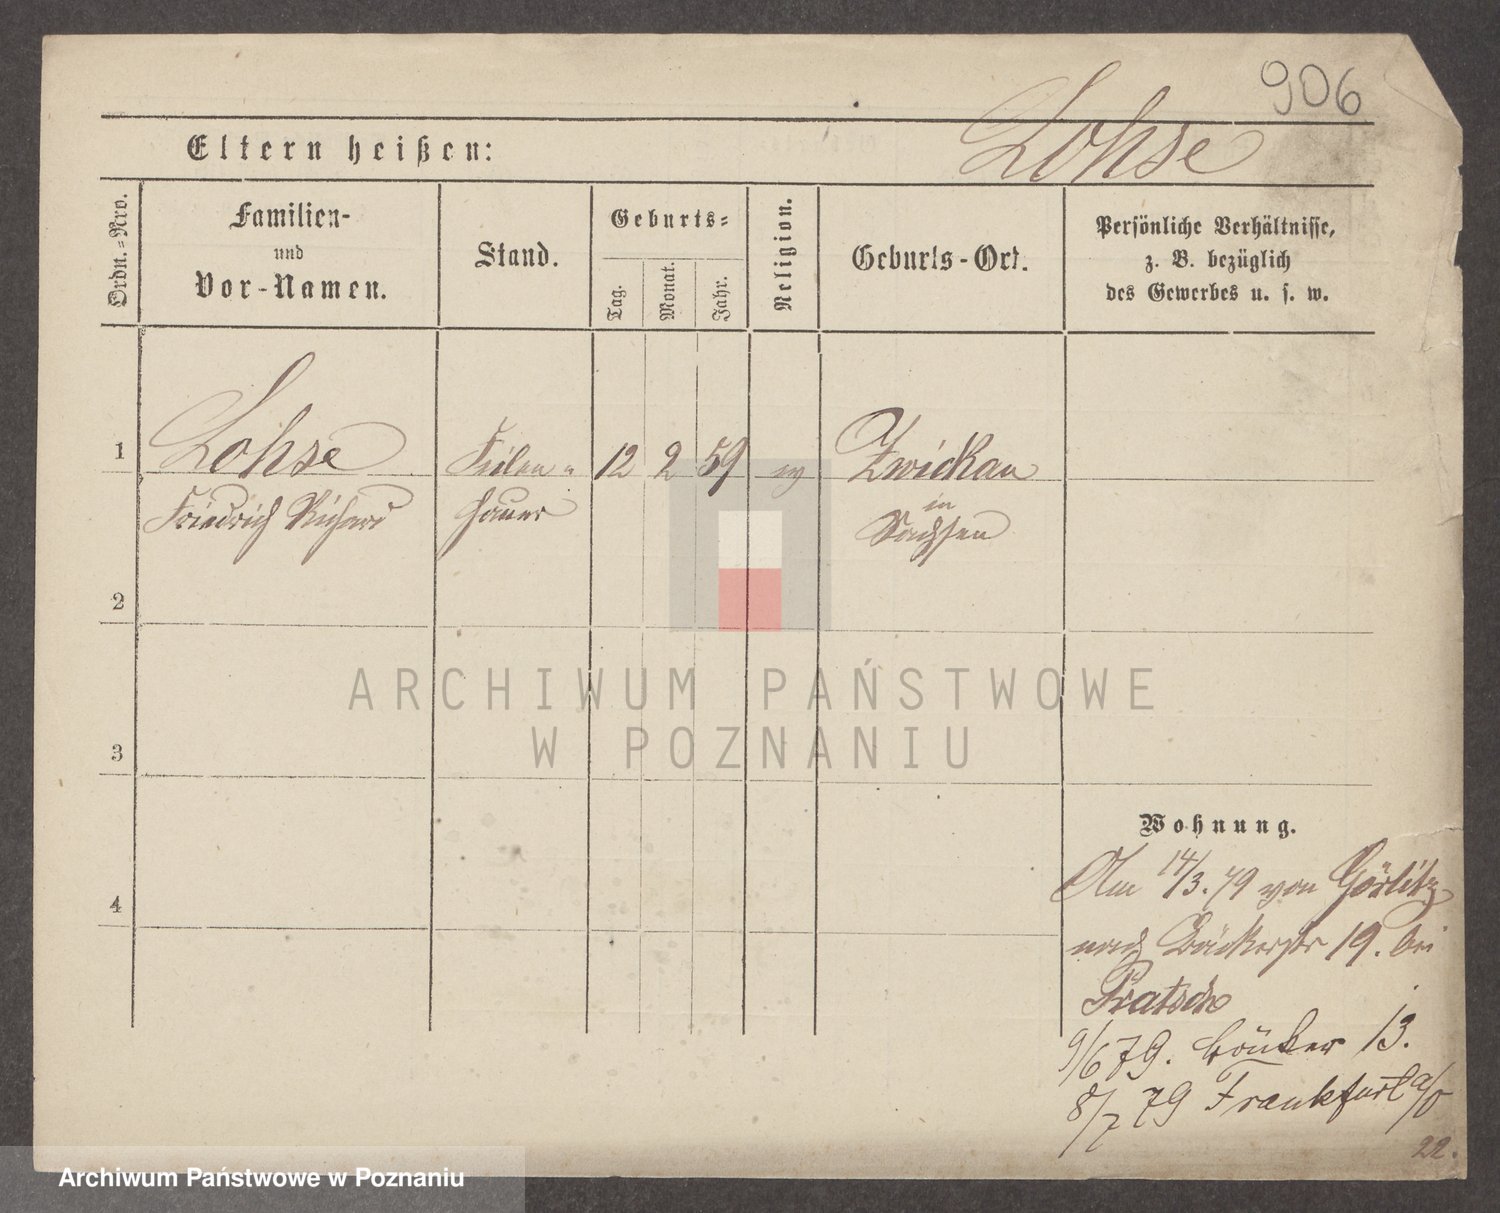 906
Eltern heißen:
Lohse
Ordn.=Nro.
Familien-
und
Vor-Namen.
Stand.
Geburts=
Tag.
Monat.
Jahr.
Religion.
Geburts-Ort.
Persönliche Verhältnisse,
z. B. bezüglich
des Gewerbes u. s. w.
1
Lohse
Friedrich Richard
Feilen=
hauer
12
2
59
ev
Zwickau
in
Sachsen
2
3
4
ARCHIWUM PAŃSTWOWE
W POZNANIU
Wohnung.
Am 14/3. 79 von Görlitz
nach Bäckerstr 19. bei
Pratsch
9/6 79. Bäcker 13.
8/7 79 Frankfurt a/O
22.
Archiwum Państwowe w Poznaniu